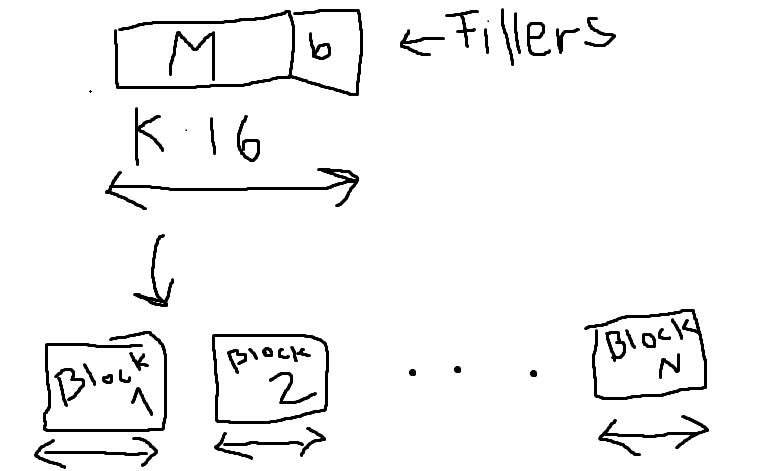 M b ← Fillers
K · 16
Block 1 Block 2 . . . Block N